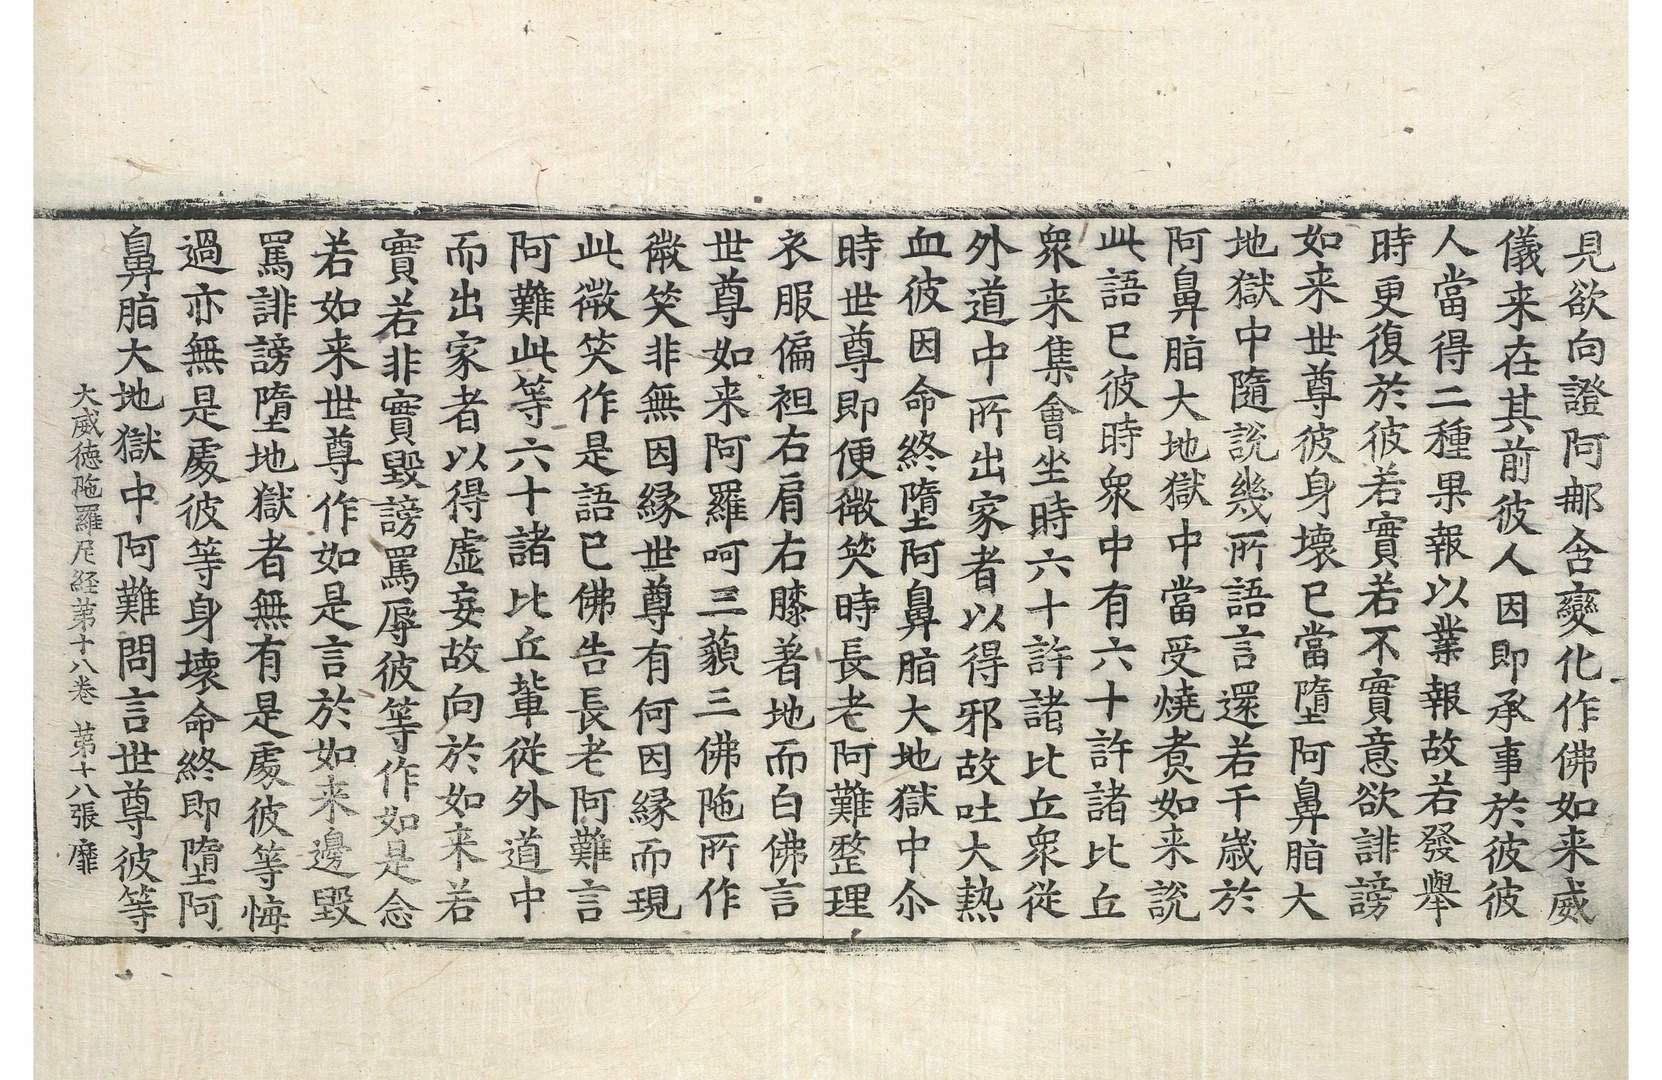 見欲向證阿那含變化作佛如来威
儀来在其前彼人因即承事於彼彼
人當得二種果報以業報故若發舉
時更復於彼若實若不實意欲誹謗
如来世尊彼身壞已當墮阿鼻脂大
地獄中隨說幾所語言還若干歲於
阿鼻脂大地獄中當受燒煑如来說
此語已彼時衆中有六十許諸比丘
衆来集會坐時六十許諸比丘衆從
外道中所出家者以得邪故吐大熱
血彼因命終墮阿鼻脂大地獄中尒
時世尊即便微笑時長老阿難整理
衣服偏袒右肩右膝著地而白佛言
世尊如来阿羅呵三藐三佛陁所作
微笑非無因緣世尊有何因緣而現
此微笑作是語已佛告長老阿難言
阿難此等六十諸比丘輩從外道中
而出家者以得虛妄故向於如来若
實若非實毀謗罵辱彼等作如是念
若如来世尊作如是言於如来邊毀
罵誹謗墮地獄者無有是處彼等悔
過亦無是處彼等身壞命終即墮阿
鼻脂大地獄中阿難問言世尊彼等
大威德陁羅尼経苐十八卷 苐十八張 靡